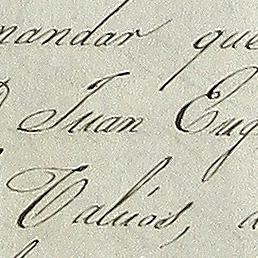 mandar que
Juan Eug
Calvos,